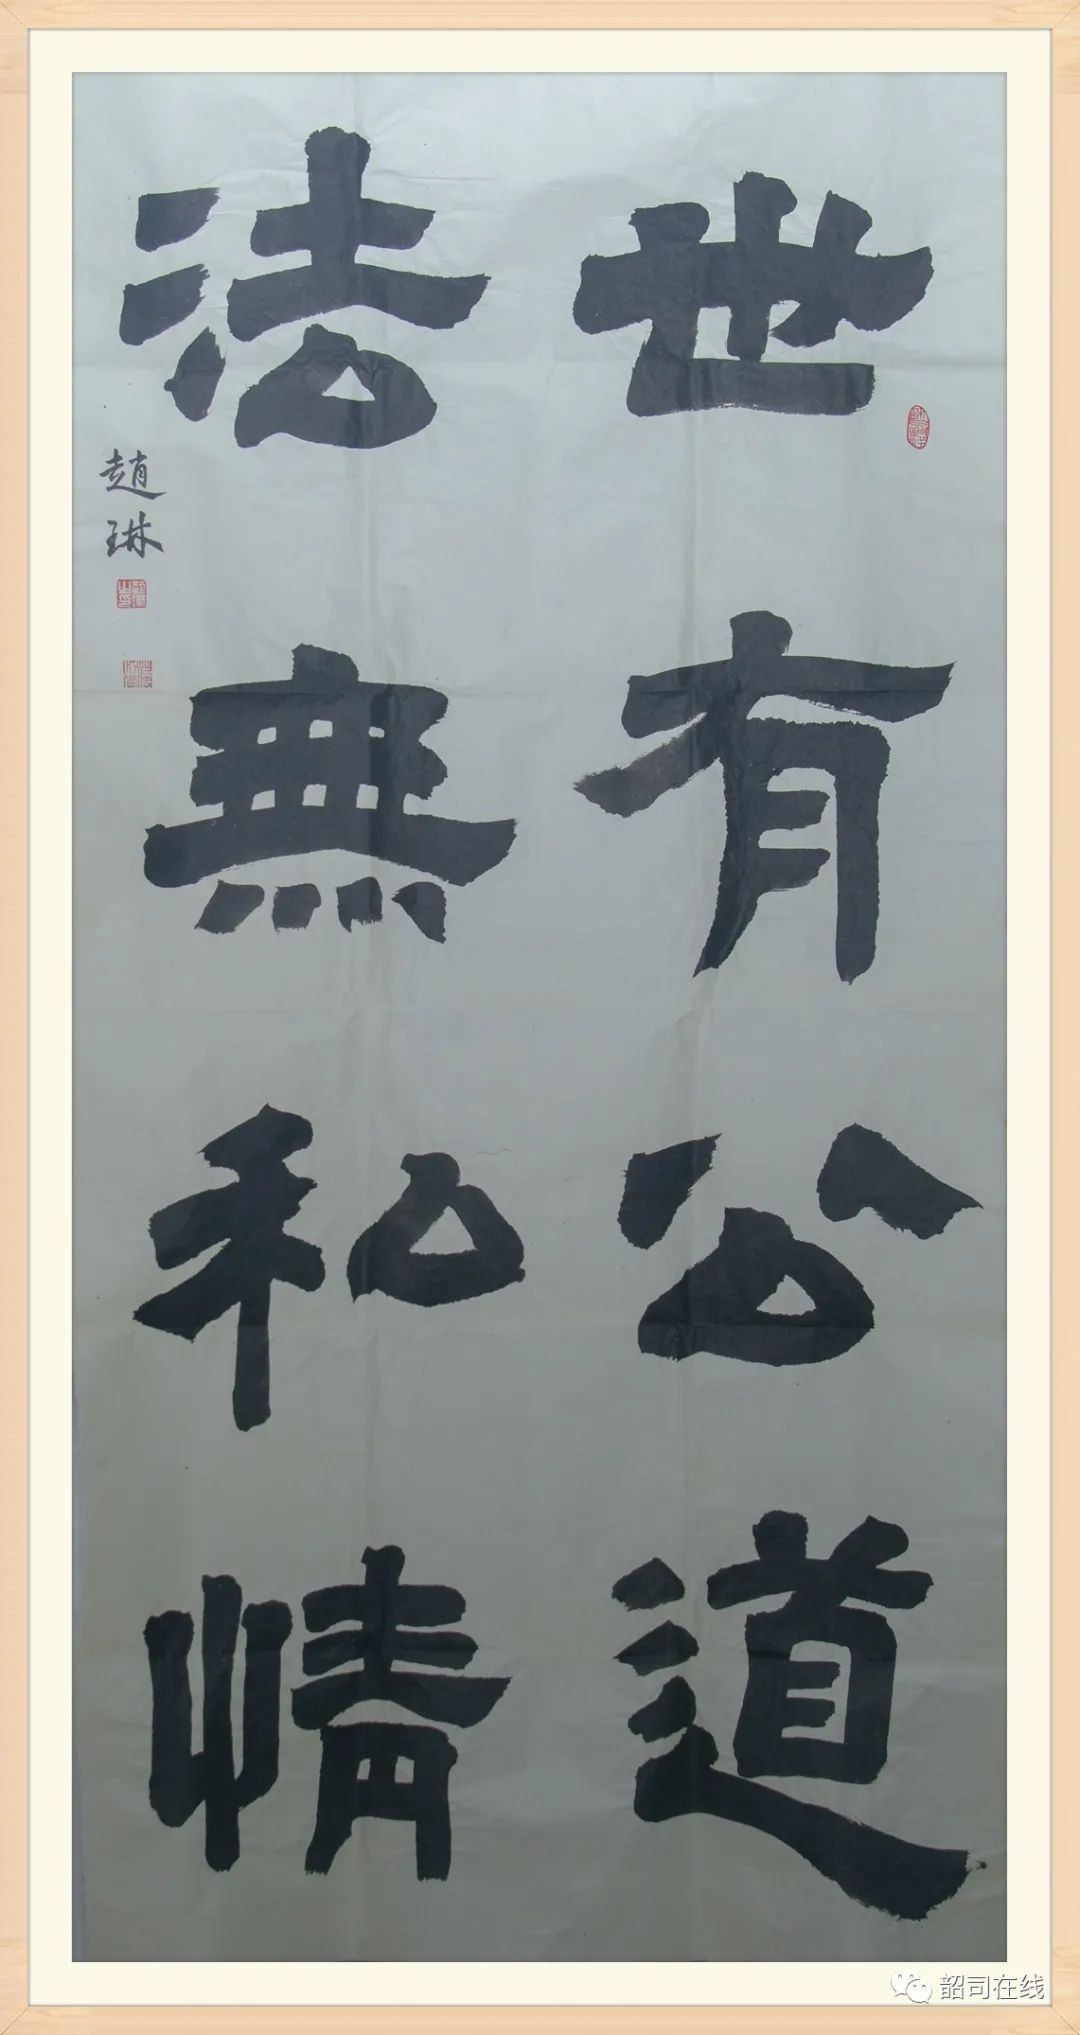 世有公道
法無私情
趙琳
韶司在线